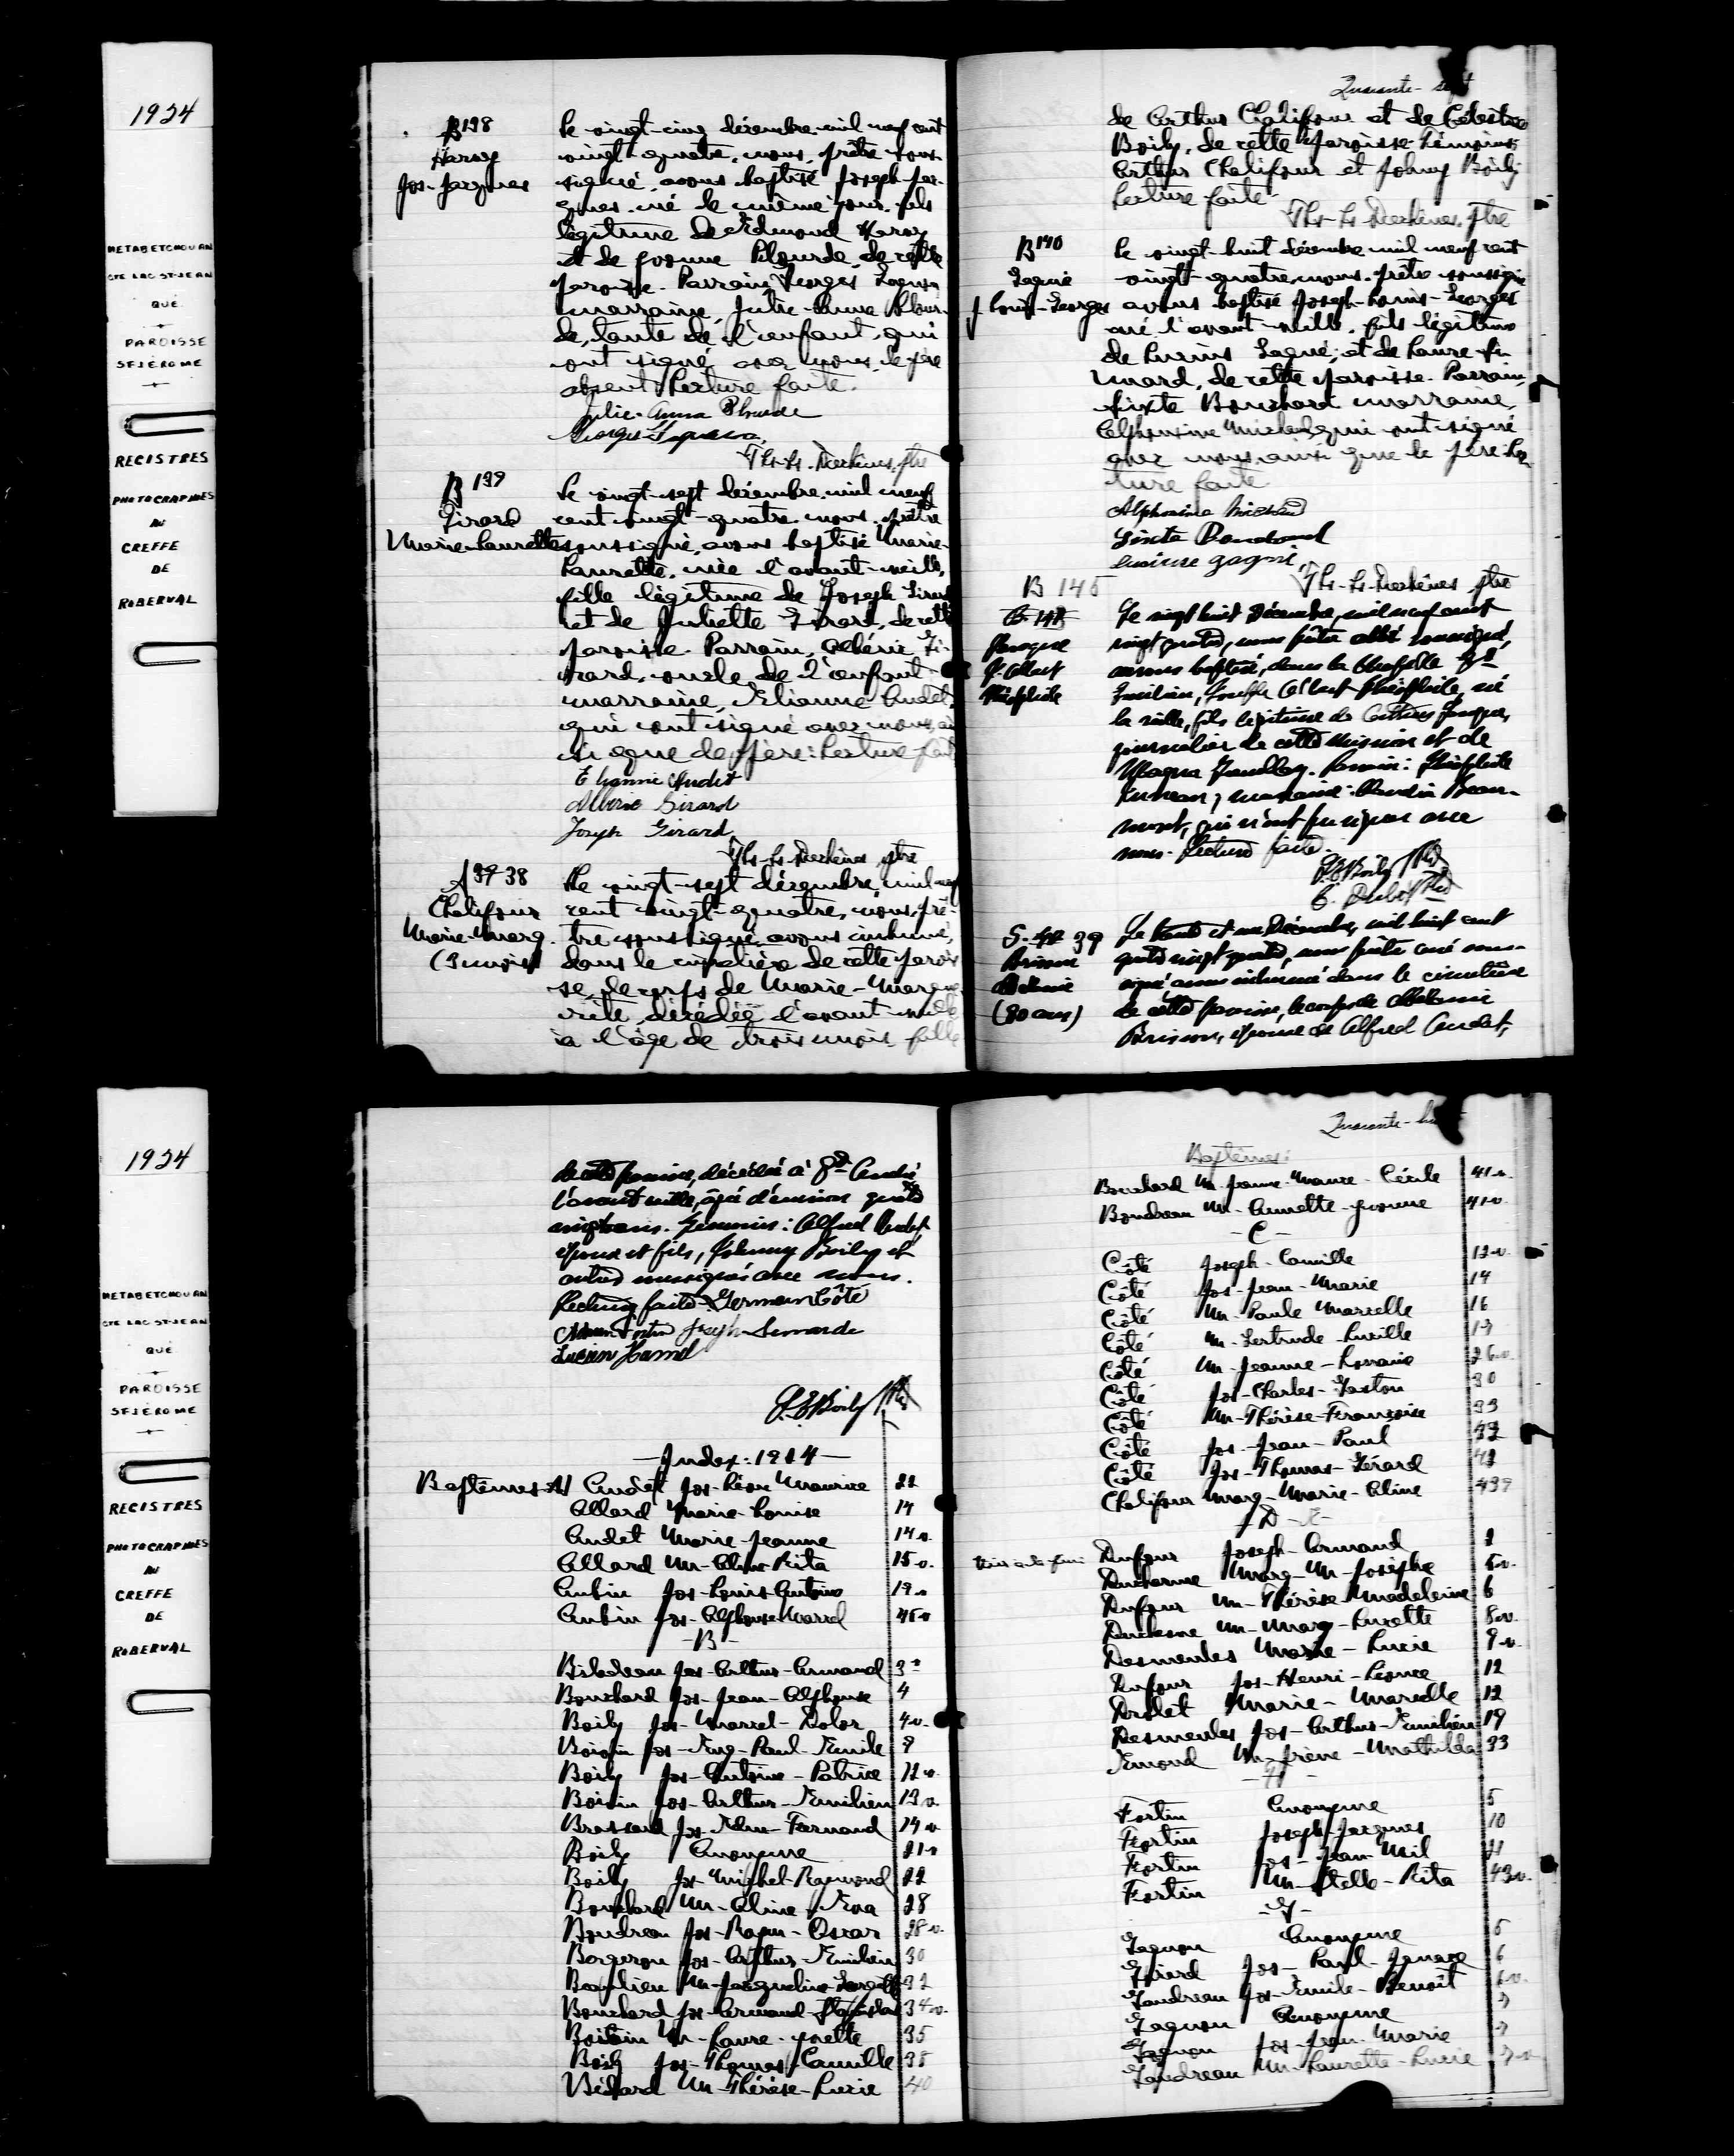 1924
METABETCHOUAN
CTE LAC ST-JEAN
QUÉ
PAROISSE
ST JÉROME
REGISTRES
PHOTOGRAPHIÉS
AU
GREFFE
DE
ROBERVAL
B 138
Harvey
Jos-Jacques
Le vingt-cinq décembre mil neuf cent
vingt-quatre, nous, prêtre sous-
signé, avons baptisé Joseph-Jac-
ques, né le même jour, fils
légitime de Edmond Harvey
et de Yvonne Plourde, de cette
paroisse. Parrain, Georges Gagnon
marraine, Julie-Anna Plour-
de, tante de l'enfant, qui
ont signé avec nous, le père
absent. Lecture faite.
Julie-Anna Plourde
Georges Gagnon
Ths-Ls-Deschênes, ptre
B 139
Girard
Marie-Laurette
Le vingt-sept décembre, mil neuf
cent vingt-quatre, nous, prêtre
soussigné, avons baptisé Marie-
Laurette, née l'avant-veille,
fille légitime de Joseph Girard
et de Juliette Girard, de cette
paroisse. Parrain, Albéric Gi-
rard, oncle de l'enfant
marraine, Elianne Audet,
qui ont signé avec nous, ain
si que le père. Lecture faite
Elianne Audet
Albéric Girard
Joseph Girard
Ths-Ls-Deschênes, ptre
38
Chalifour
Marie-Marg.
(3 mois)
Le vingt-sept décembre, mil neuf
cent vingt-quatre, nous, prê-
tre soussigné, avons inhumé,
dans le cimetière de cette parois
se, le corps de Marie-Margue
rite, décédée l'avant-veille
à l'âge de trois mois, fille
Quarante-sept
de Arthur Chalifour et de Célestine
Boily, de cette paroisse. Témoins
Arthur Chalifour et Johny Boily
Lecture faite
Ths-Ls-Deschênes, ptre
B 140
Gagné
J. Louis-Georges
Le vingt-huit décembre mil neuf cent
vingt-quatre, nous, prêtre soussigné
avons baptisé Joseph-Louis-Georges
né l'avant-veille, fils légitime
de Lucius Gagné, et de Laure Si-
mard, de cette paroisse. Parrain,
Sixte Bouchard marraine,
Alphonsine Michaud qui ont signé
avec nous, ainsi que le père. Lec
ture faite
Alphonsine Michaud
Sixte Bouchard
gagné
Ths-Ls-Deschênes, ptre
B 145
J. Albert
Théophile
Le vingt huit Décembre, mil neuf cent
vingt quatre, nous prêtre abbé soussigné,
avons baptisé, dans la Chapelle St
Emilien, Joseph Albert Théophile, né
la veille, fils légitime de Arthur
journalier de cette mission et de
Tremblay. Parrain: Théophile
marraine: Beau-
mont, qui n'ont pu signer avec
nous. Lecture faite.
P.E. Boily Ptre
S. 39
Brisson
(80 ans)
Le trente et un Décembre, mil huit cent
quatre vingt quatre, nous prêtre curé sous-
signé avons inhumé dans le cimetière
de cette paroisse, le corps de
Brisson, épouse de Alfred Audet,
1924
METABETCHOUAN
CTE LAC ST-JEAN
QUÉ
PAROISSE
ST JÉROME
REGISTRES
PHOTOGRAPHIÉS
AU
GREFFE
DE
ROBERVAL
de cette paroisse, décédée à St André
l'avant veille, âgée d'environ quatre
vingt ans. Témoins: Alfred Audet,
époux et fils, Johnny Boily et
autres soussignés avec nous.
Lecture faite. Germain Côté
Joseph
Lucien Hamel
P.E. Boily Ptre
Index: 1924
Baptêmes A
Audet Jos-Léon Maurice 22
Allard Marie-Louise 14
Audet Marie-Jeanne 14 v.
Allard M-Aline-Rita 15 v.
Aubin Jos-Louis-Antoine 19 v
Aubin Jos-Alphonse-Marcel 45 v
- B -
Bilodeau Jos-Arthur-Armand 3
Bouchard Jos-Jean-Alphonse 4
Boily Jos-Marcel-Dolor 4 v.
Boivin Jos-Eug-Paul-Emile 9
Boily Jos-Antoine-Patrice 12 v.
Boivin Jos-Arthur-Emilien 13 v.
Brassard Jos-Edm-Fernand 14 v
Boily Anonyme 21 v
Boily Jos-Michel-Raymond 22
Bouchard M-Aline-Eva 28
Boudreau Jos-Roger-Oscar 28 v.
Bergeron Jos-Arthur-Emilien 30
Beaulieu M-Jacqueline-Georgette 32
Bouchard Jos-Armand-Stanislas 34 v.
Boivin M-Laure-Yvette 35
Boily Jos-Thomas-Camille 38
Bédard M-Thérèse-Lucie 40
Quarante-huit
Baptêmes:
Bouchard M-Jeanne-Mance-Cécile 41 v.
Boudreau M-Annette-Yvonne 41 v.
- C -
Côté Joseph-Camille 12 v.
Côté Jos-Jean-Marie 14
Côté M-Paule Marcelle 16
Côté M-Gertrude-Lucille 19
Côté M-Jeanne-Lorraine 26 v.
Côté Jos-Charles-Gaston 30
Côté M-Thérèse-Françoise 33
Côté Jos-Jean-Paul
Côté Jos-Thomas-Gérard 42
Chalifour Marg-Marie-Aline
- D - E -
Dufour Joseph-Armand 2
Ducharme Marg-M-Josèphe 5 v.
Dufour M-Thérèse Madeleine 6
Duchesne M-Marg-Lucette 8 v.
Desmeules Marie-Lucie 9 v.
Dufour Jos-Henri-Léonce 12
Drolet Marie-Marielle 12
Desmeules Jos-Arthur-Emilien 19
Emond M-Irène-Mathilda 33
- F -
Fortin Anonyme 5
Fortin Joseph-Jacques 10
Fortin Jos-Jean-Nil 21
Fortin M-Stelle-Rita 43 v.
- G -
Gagnon Anonyme 5
Girard Jos-Paul-Ignace 6
Gaudreau Jos-Emile-Benoît 6 v.
Gagnon Anonyme 7
Gagnon Jos-Jean-Marie 7
Gaudreau M-Laurette-Lucie 7 v.